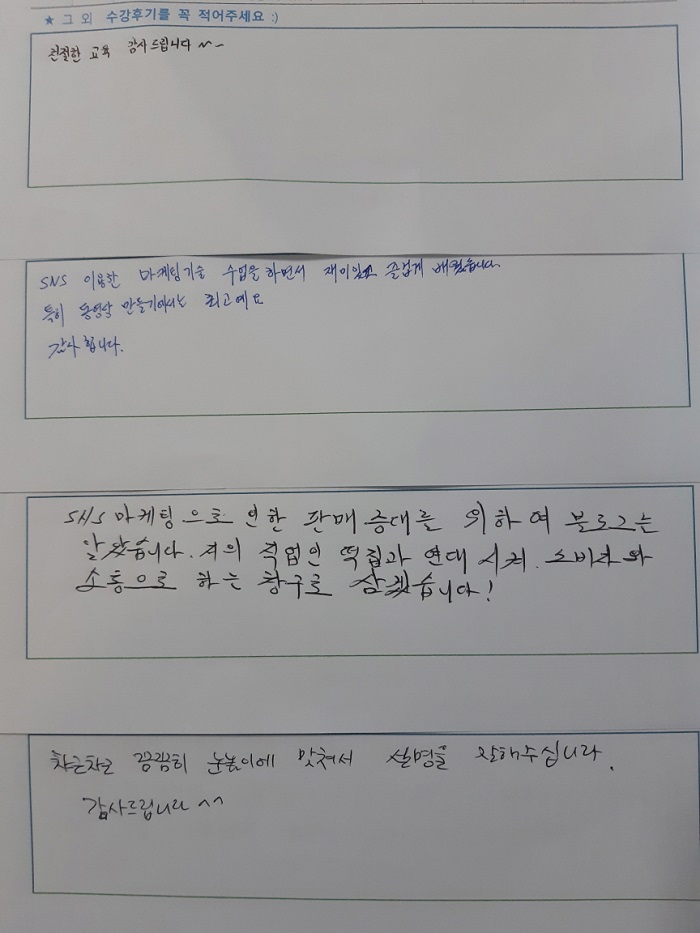 ★ 그 외 수강후기를 꼭 적어주세요 :)
친절한 교육 감사드립니다 ~~
SNS 이용한 마케팅기술 수업을 하면서 재미있고 즐겁게 배웠습니다.
특히 동영상 만들기에서는 최고예요
감사합니다.
SNS 마케팅으로 인한 판매 증대를 의하여 블로그는
알았습니다. 저의 직업인 떡집과 연대 시켜. 소비자와
소통으로 하는 창구로 삼겠습니다!
차근차근 꼼꼼히 눈높이에 맞춰서 설명을 잘해주십니다.
감사드립니다 ^^